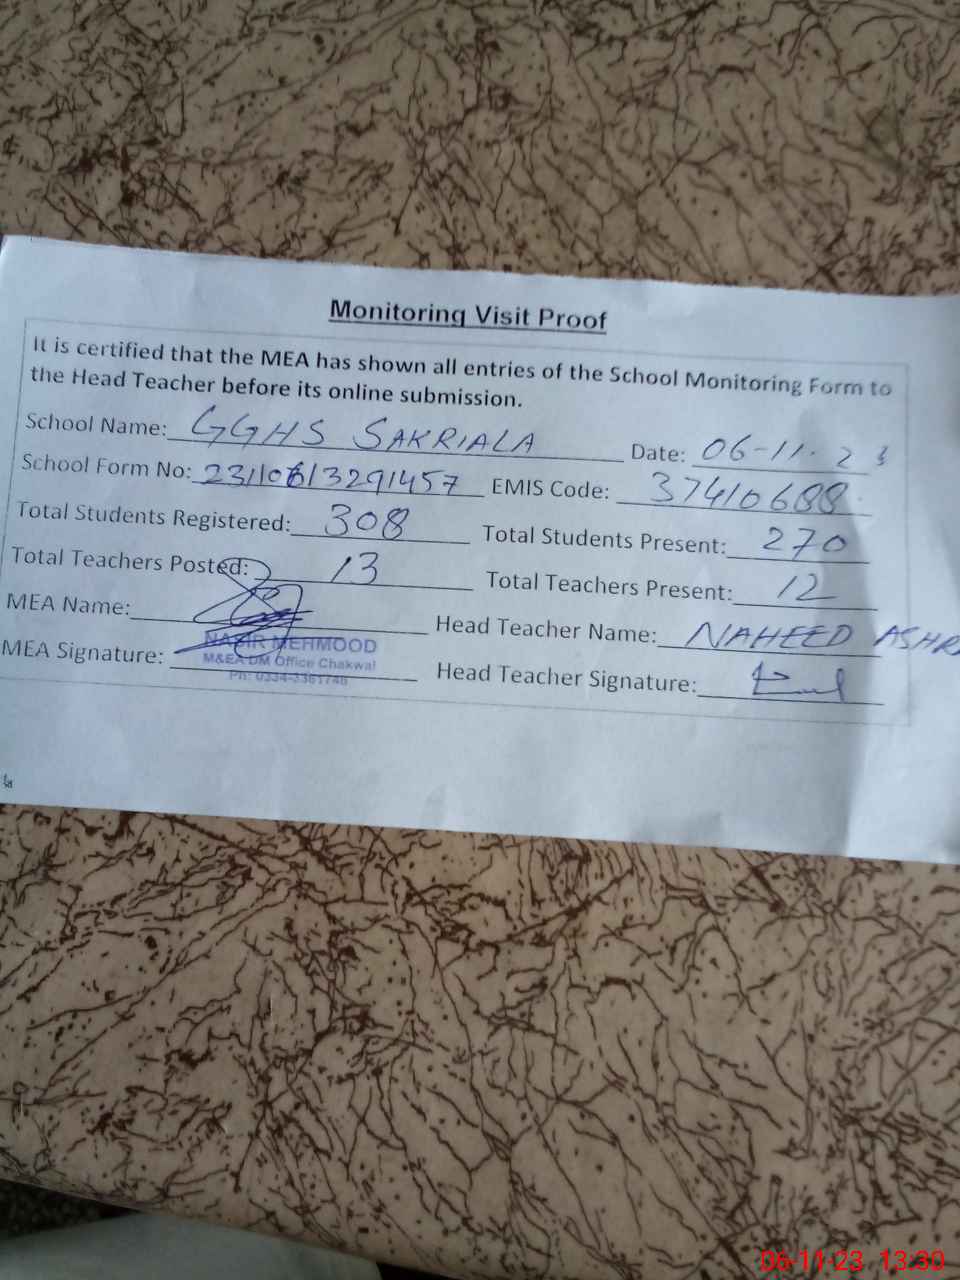 Monitoring Visit Proof
It is certified that the MEA has shown all entries of the School Monitoring Form to
the Head Teacher before its online submission.
School Name: GGHS SAKRIALA Date: 06-11-23
School Form No: 23110613291457 EMIS Code: 37410688
Total Students Registered: 308 Total Students Present: 270
Total Teachers Posted: 13 Total Teachers Present: 12
MEA Name: Head Teacher Name: NAHEED
MEA Signature: Head Teacher Signature:
NASIR MEHMOOD
M&EA DM Office Chakwal
06-11-23 13:30